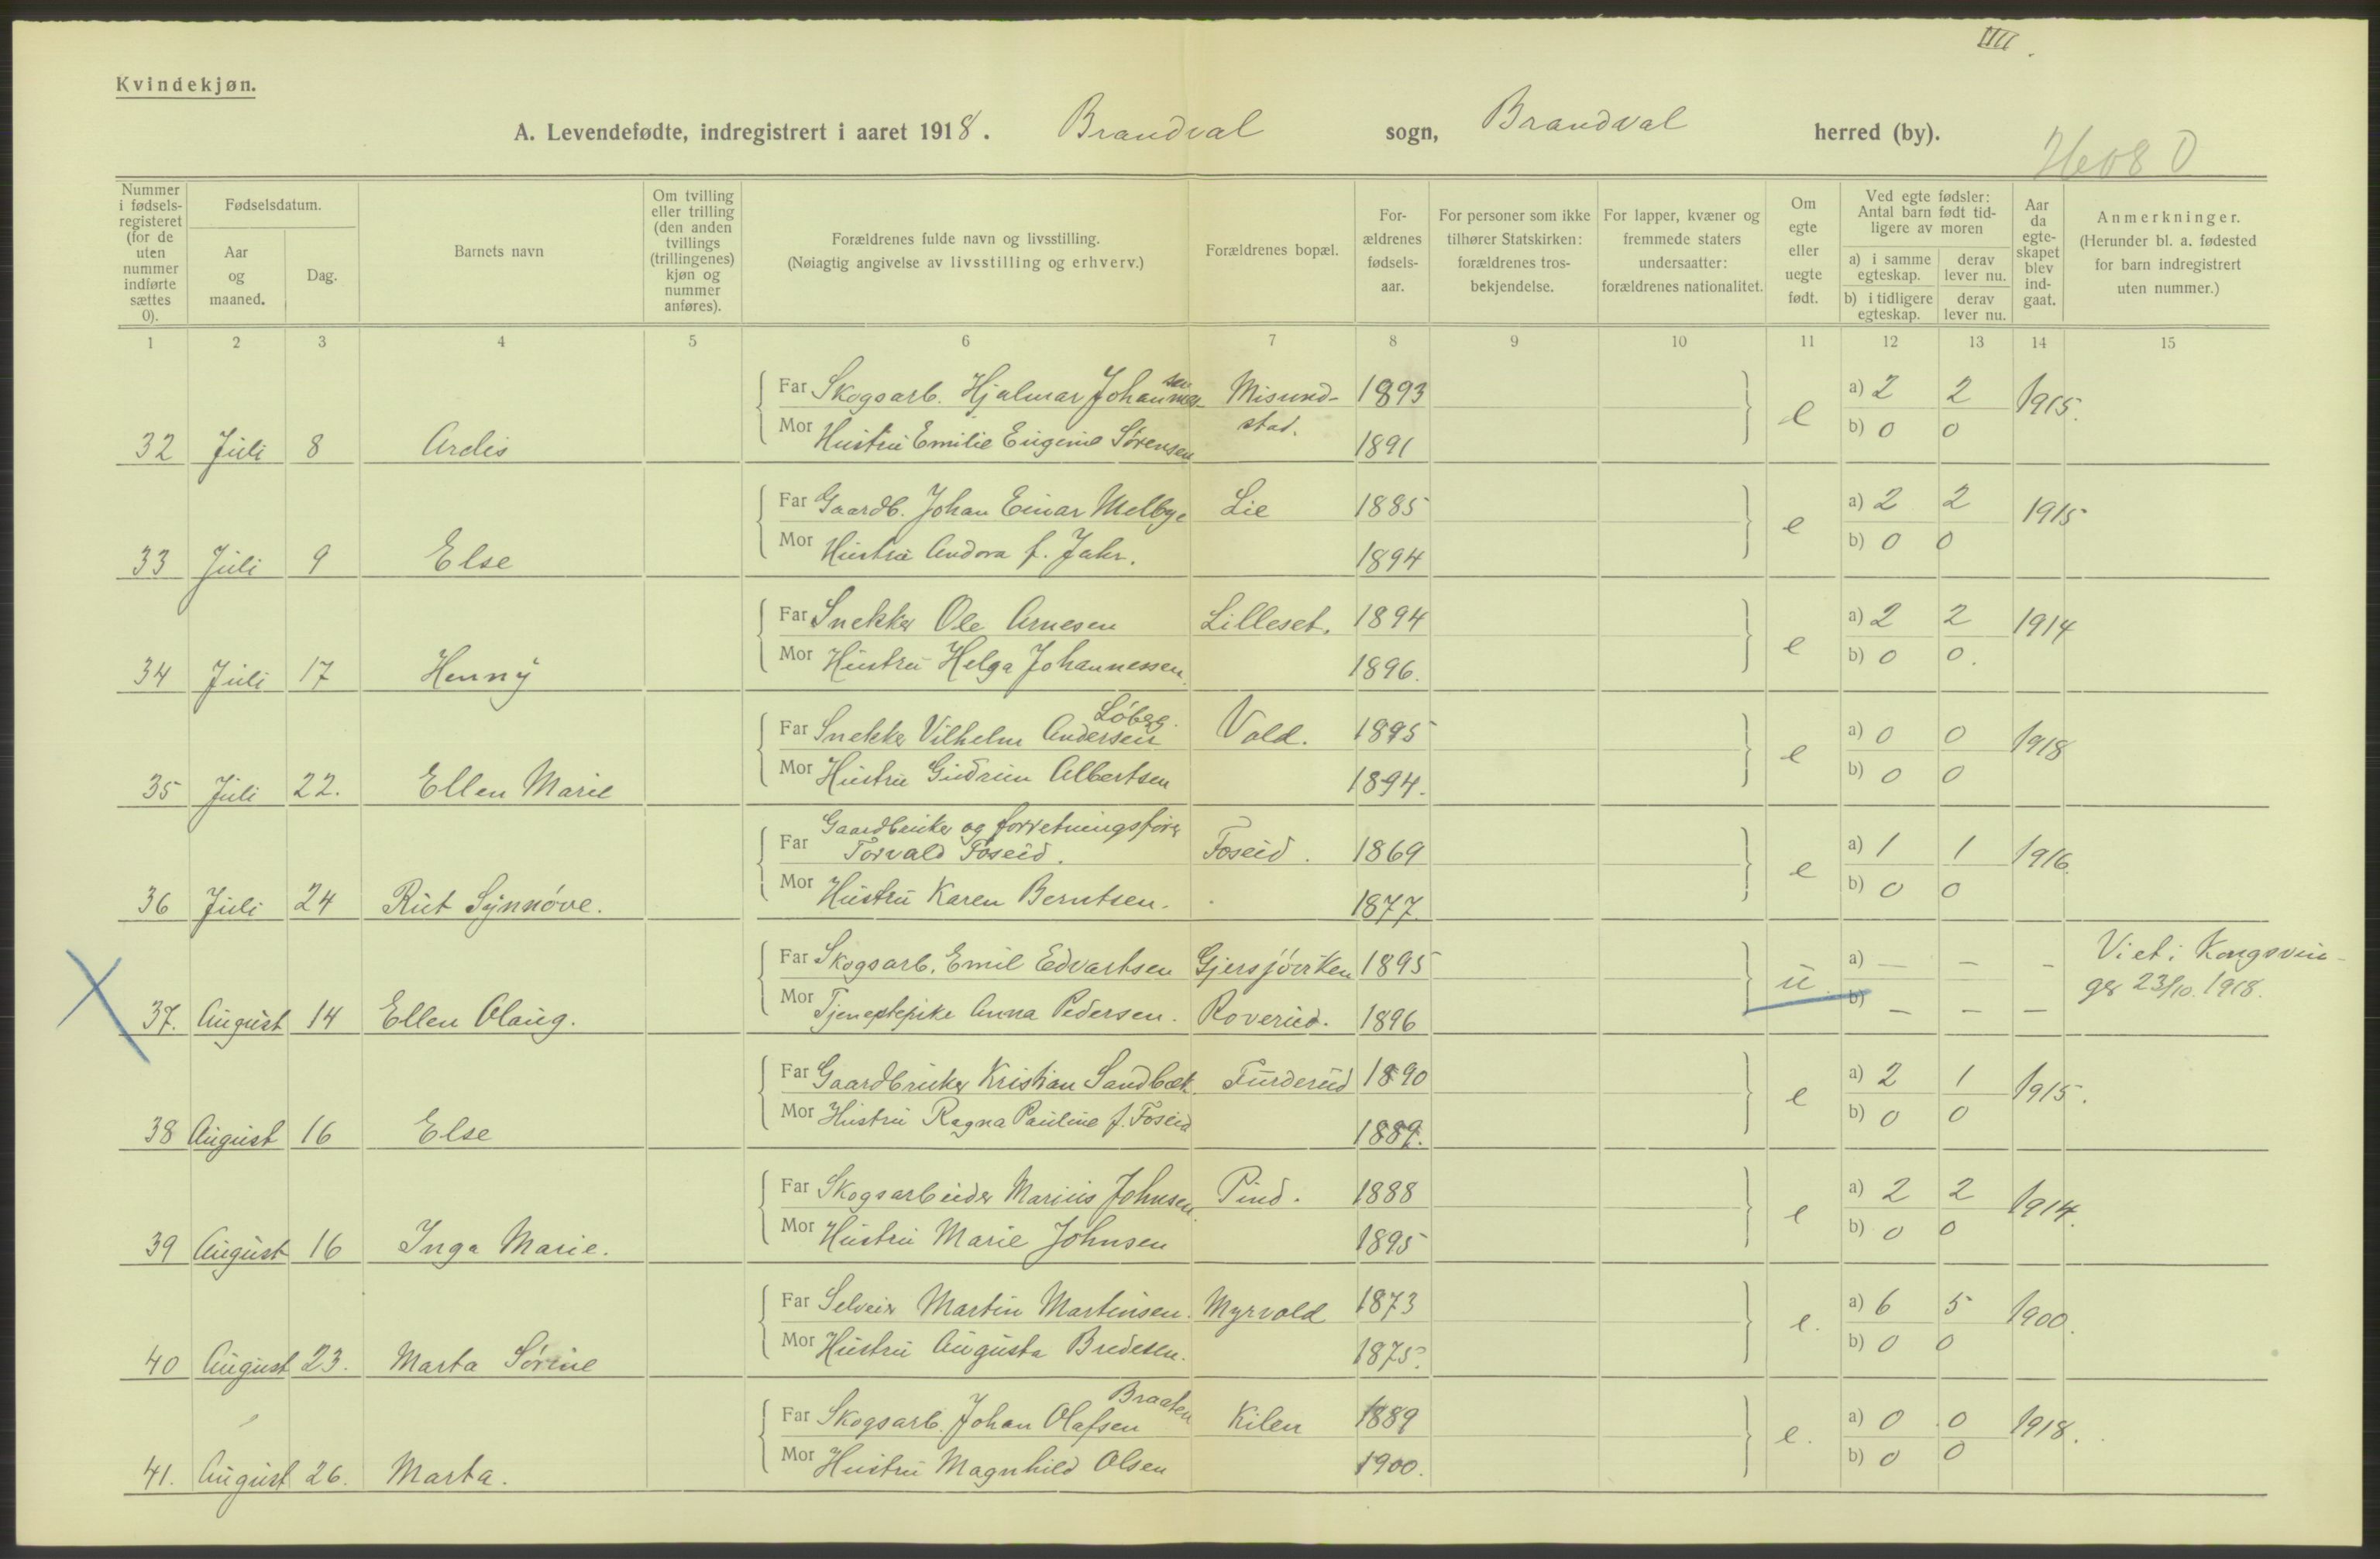 IIII.
Kvindekjøn.
A. Levendefødte, indregistrert i aaret 1918. Brandval sogn, Brandval herred (by).
Nummer i fødsels-registeret (for de uten nummer indførte sættes 0).
Fødselsdatum.
Aar og maaned.
Dag.
Barnets navn
Om tvilling eller trilling (den anden tvillings (trillingenes) kjøn og nummer anføres).
Forældrenes fulde navn og livsstilling.
(Nøiagtig angivelse av livsstilling og erhverv.)
Forældrenes bopæl.
For-ældrenes fødsels-aar.
For personer som ikke tilhører Statskirken: forældrenes tros-bekjendelse.
For lapper, kvæner og fremmede staters undersaatter: forældrenes nationalitet.
Om egte eller uegte født.
Ved egte fødsler: Antal barn født tid-ligere av moren
a) i samme egteskap. derav lever nu.
b) i tidligere egteskap. derav lever nu.
Aar da egte-skapet blev ind-gaat.
Anmerkninger.
(Herunder bl. a. fødested for barn indregistrert uten nummer.)
1 2 3 4 5 6 7 8 9 10 11 12 13 14 15
Far Skogsarb. Hjalmar Johannessen Misund- 1893 a) 2 2 1915.
32 Juli 8 Ardis Mor Hustru Emilie Eugenie Sørensen stad. 1891 e b) 0 0
Far Gaardb. Johan Einar Melbye Lie 1885 a) 2 2 1915
33 Juli 9 Else Mor Hustru Andora f. Jahr. 1894 e b) 0 0
Far Snekker Ole Arnesen Lilleset. 1894 a) 2 2 1914
34 Juli 17 Henny Mor Hustru Helga Johannessen. 1896. e b) 0 0.
Løberg.
Far Snekker Vilhelm Andersen Vold. 1895 a) 0 0 1918
35 Juli 22. Ellen Marie Mor Hustru Gudrun Albertsen 1894. e b) 0 0
Gaardbruker og forretningsfører
Far Torvald Foseid. Foseid. 1869 a) 1 1 1916.
36 Juli 24 Rut Synnøve. Mor Hustru Karen Berntsen. 1877. e b) 0 0
Far Skogsarb. Emil Edvartsen 1895 u. a) — — - Viet i Kongsvin-
37. August 14 Ellen Olaug. Mor Tjenestepike Anna Pedersen. Roverud. 1896 b) — — — ger 23/10. 1918.
Far Gaardbruker Kristian Sandbæk Furderud 1890 a) 2 1 1915.
38 August 16 Else Mor Hustru Ragna Pauline f. Foseid 1889. e b) 0 0
Far Skogsarbeider Marius Johnsen. Pind. 1888 a) 2 2 1914.
39 August 16 Inga Marie. Mor Hustru Marie Johnsen 1895 e b) 0 0
Far Selveier Martin Martinsen. Myrvold 1873 a) 6 5 1900.
40 August 23. Marta Sørine Mor Hustru Augusta Bredesen. 1875. e. b) 0 0
Braaten
Far Skogsarb. Johan Olafsen Kilen 1889 a) 0 0 1918.
41. August 26. Marta. Mor Hustru Magnhild Olsen 1900. e. b) 0 0